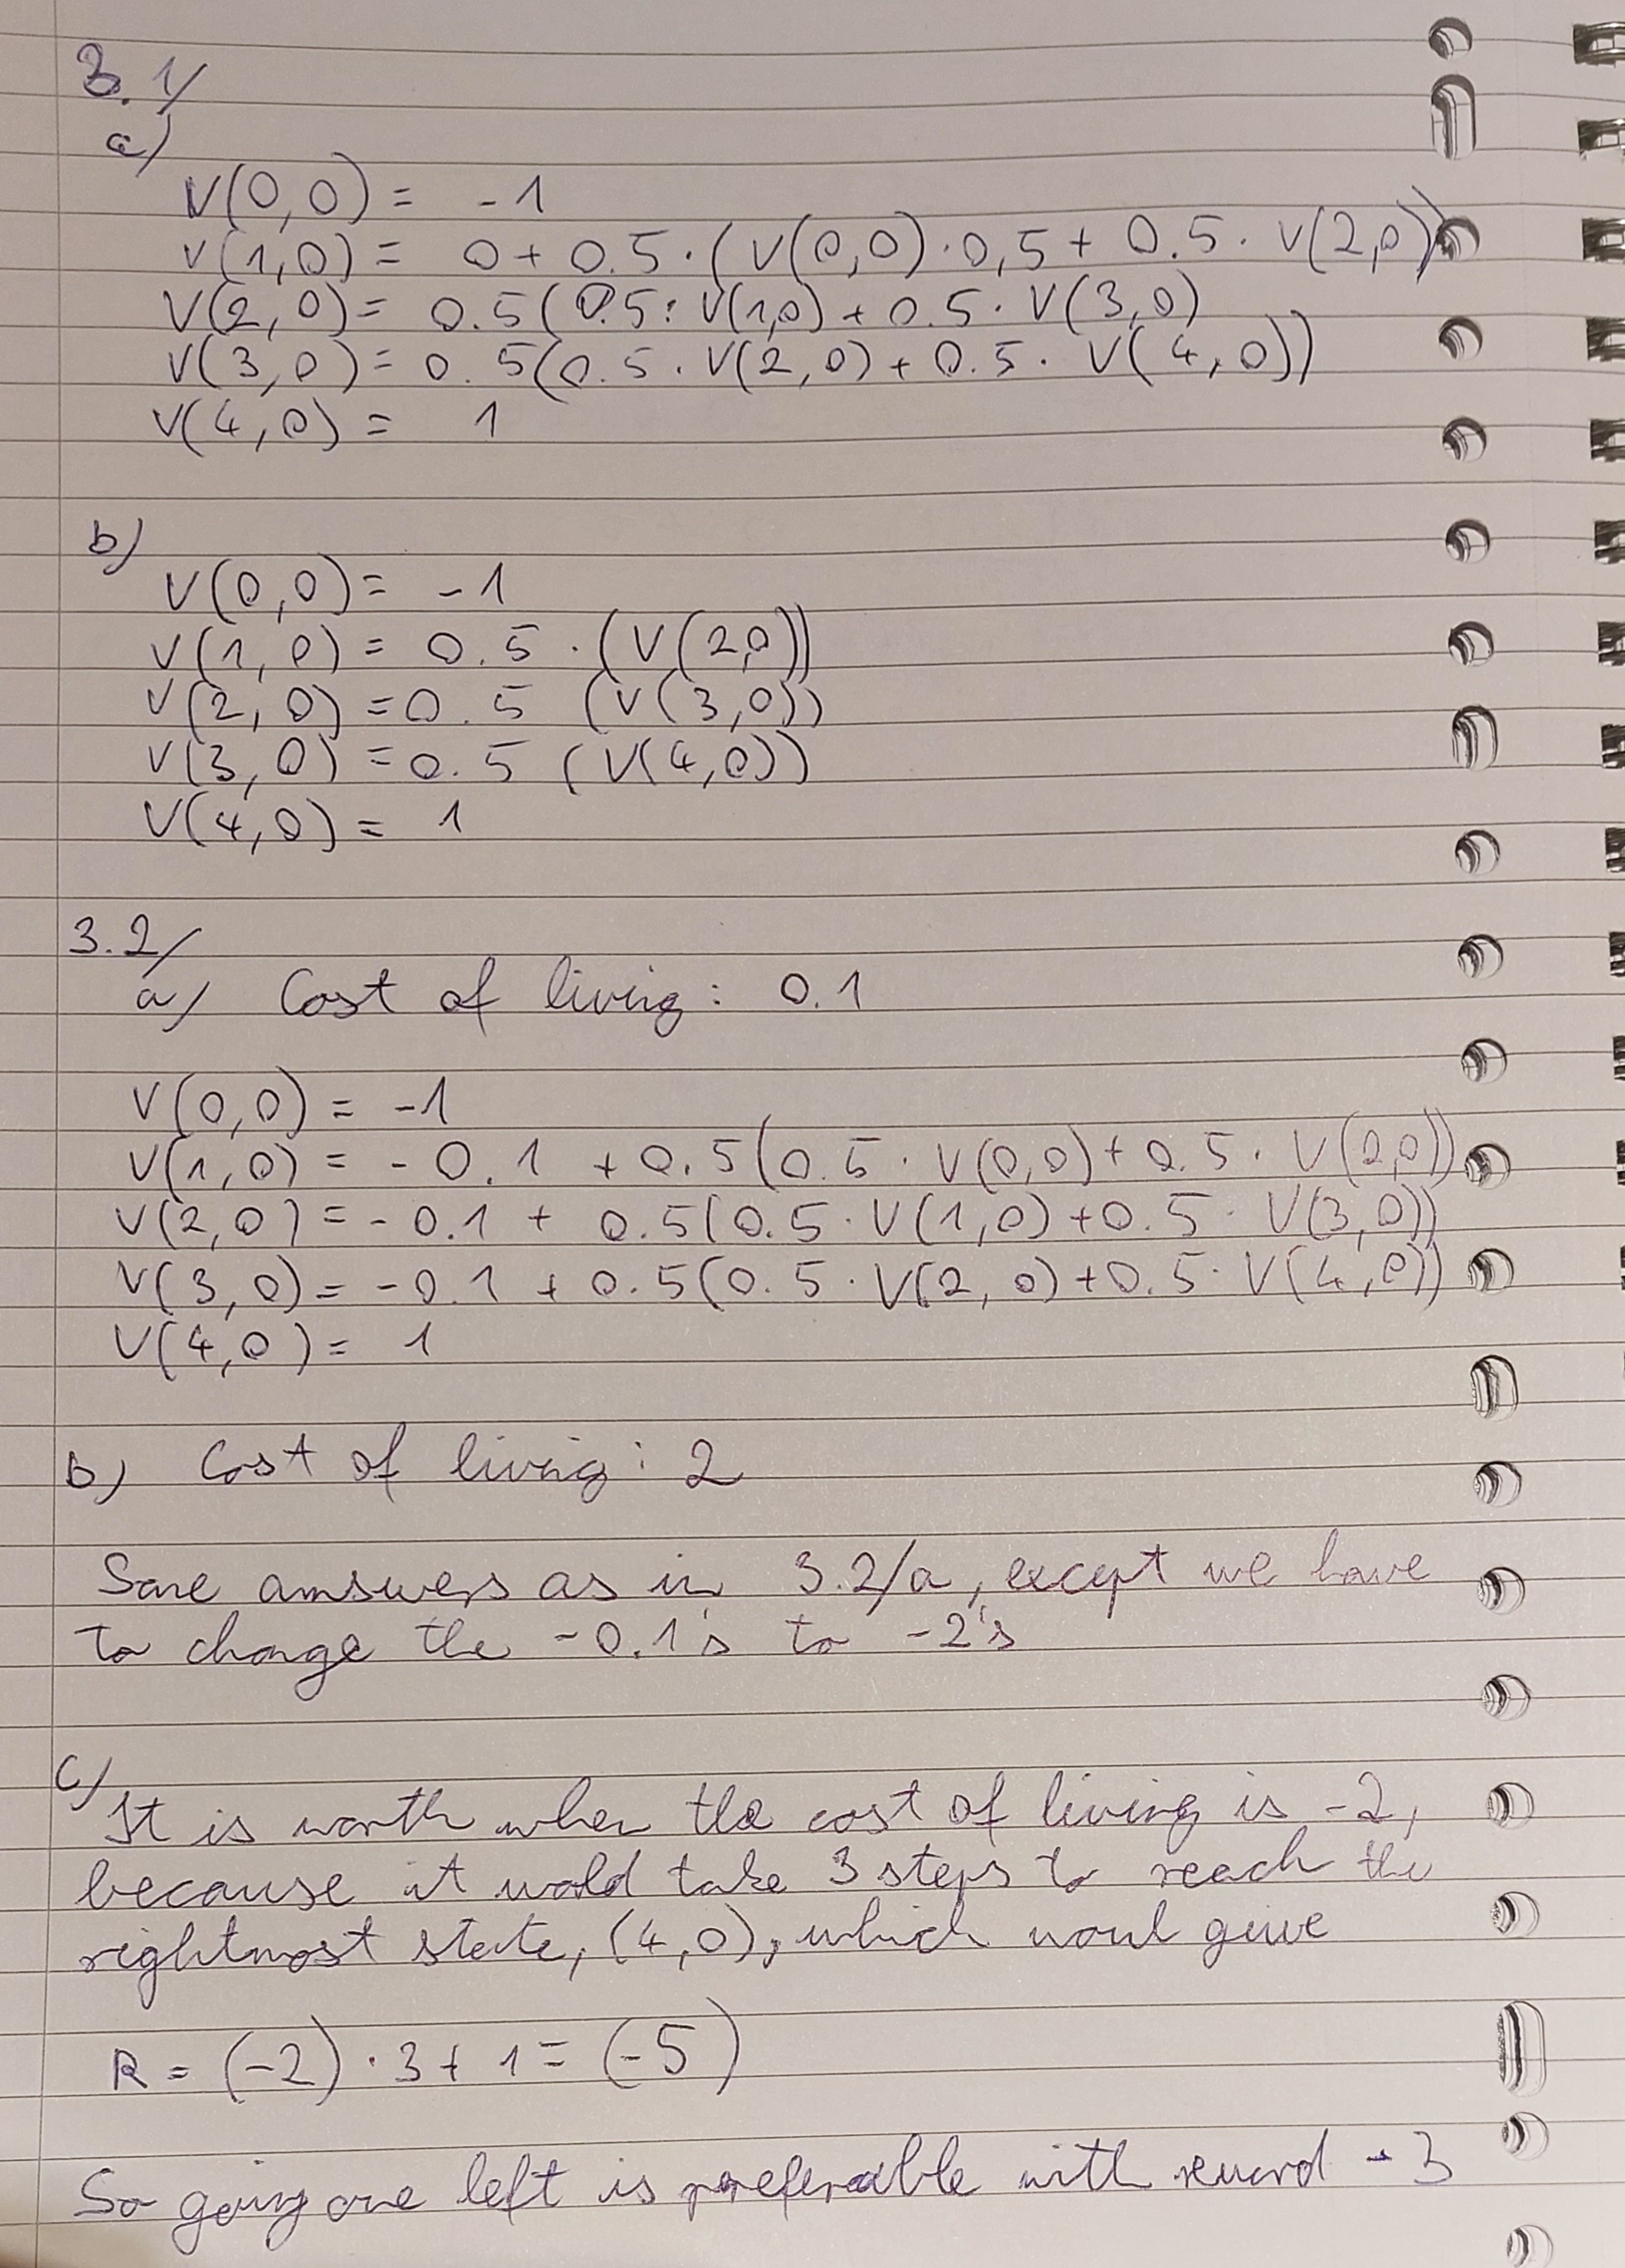 3.1/
a)
V(0,0) = -1
V(1,0) = 0 + 0.5 · (V(0,0) · 0,5 + 0.5 · V(2,0))
V(2,0) = 0.5 (0.5 · V(1,0) + 0.5 · V(3,0)
V(3,0) = 0.5(0.5 · V(2,0) + 0.5 · V(4,0))
V(4,0) = 1
b)
V(0,0) = -1
V(1,0) = 0.5 · (V(2,0))
V(2,0) = 0.5 (V(3,0))
V(3,0) = 0.5 (V(4,0))
V(4,0) = 1
3.2/
a) Cost of living: 0.1
V(0,0) = -1
V(1,0) = -0.1 + 0.5(0.5 · V(0,0) + 0.5 · V(2,0))
V(2,0) = -0.1 + 0.5(0.5 · V(1,0) + 0.5 · V(3,0))
V(3,0) = -0.1 + 0.5(0.5 · V(2,0) + 0.5 · V(4,0))
V(4,0) = 1
b) Cost of living: 2
Same answers as in 3.2/a, except we have
to change the -0.1's to -2's
c)
It is worth when the cost of living is -2,
because it wold take 3 steps to reach the
rightmost state, (4,0), which woul give
R = (-2) · 3 + 1 = (-5)
So going one left is preferable with reward -3